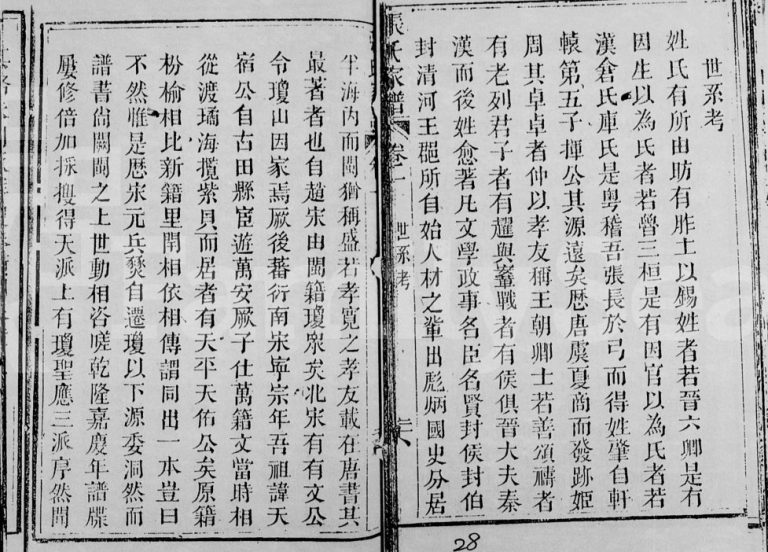 世系考
姓氏有所由昉有胙土以錫姓者若晉六卿是有
因生以為氏者若魯三桓是有因官以為氏者若
漢倉氏庫氏是粵稽吾張長於弓而得姓肇自軒
轅第五子揮公其源遠矣歷唐虞夏商而發跡姬
周其卓卓者仲以孝友稱王朝卿士若善頌禱者
有老列君子者有趯與鞌戰者有侯俱晉大夫秦
漢而後姓愈著凡文學政事名臣名賢封侯封伯
封清河王郡所自始人材之輩出彪炳國史分居
張氏家譜 卷一 世系考
半海內而閩猶稱盛若孝寬之孝友載在唐書其
最著者也自趙宋由閩籍瓊衆矣北宋有有文公
令瓊山因家焉厥後蕃衍南宋寧宗年吾祖諱天
宿公自古田縣宦遊萬安厥子仕萬籍文當時相
從渡瓊海攬紫貝而居者有天平天佑公矣原籍
枌榆相比新籍里閈相依相傳謂同出一本豈曰
不然惟是歷宋元兵燹自遷瓊以下源委洞然而
譜書尚闕閩之上世動相咨嘆乾隆嘉慶年譜牒
屢修倍加採搜得天派上有瓊聖應三派序然閩
28